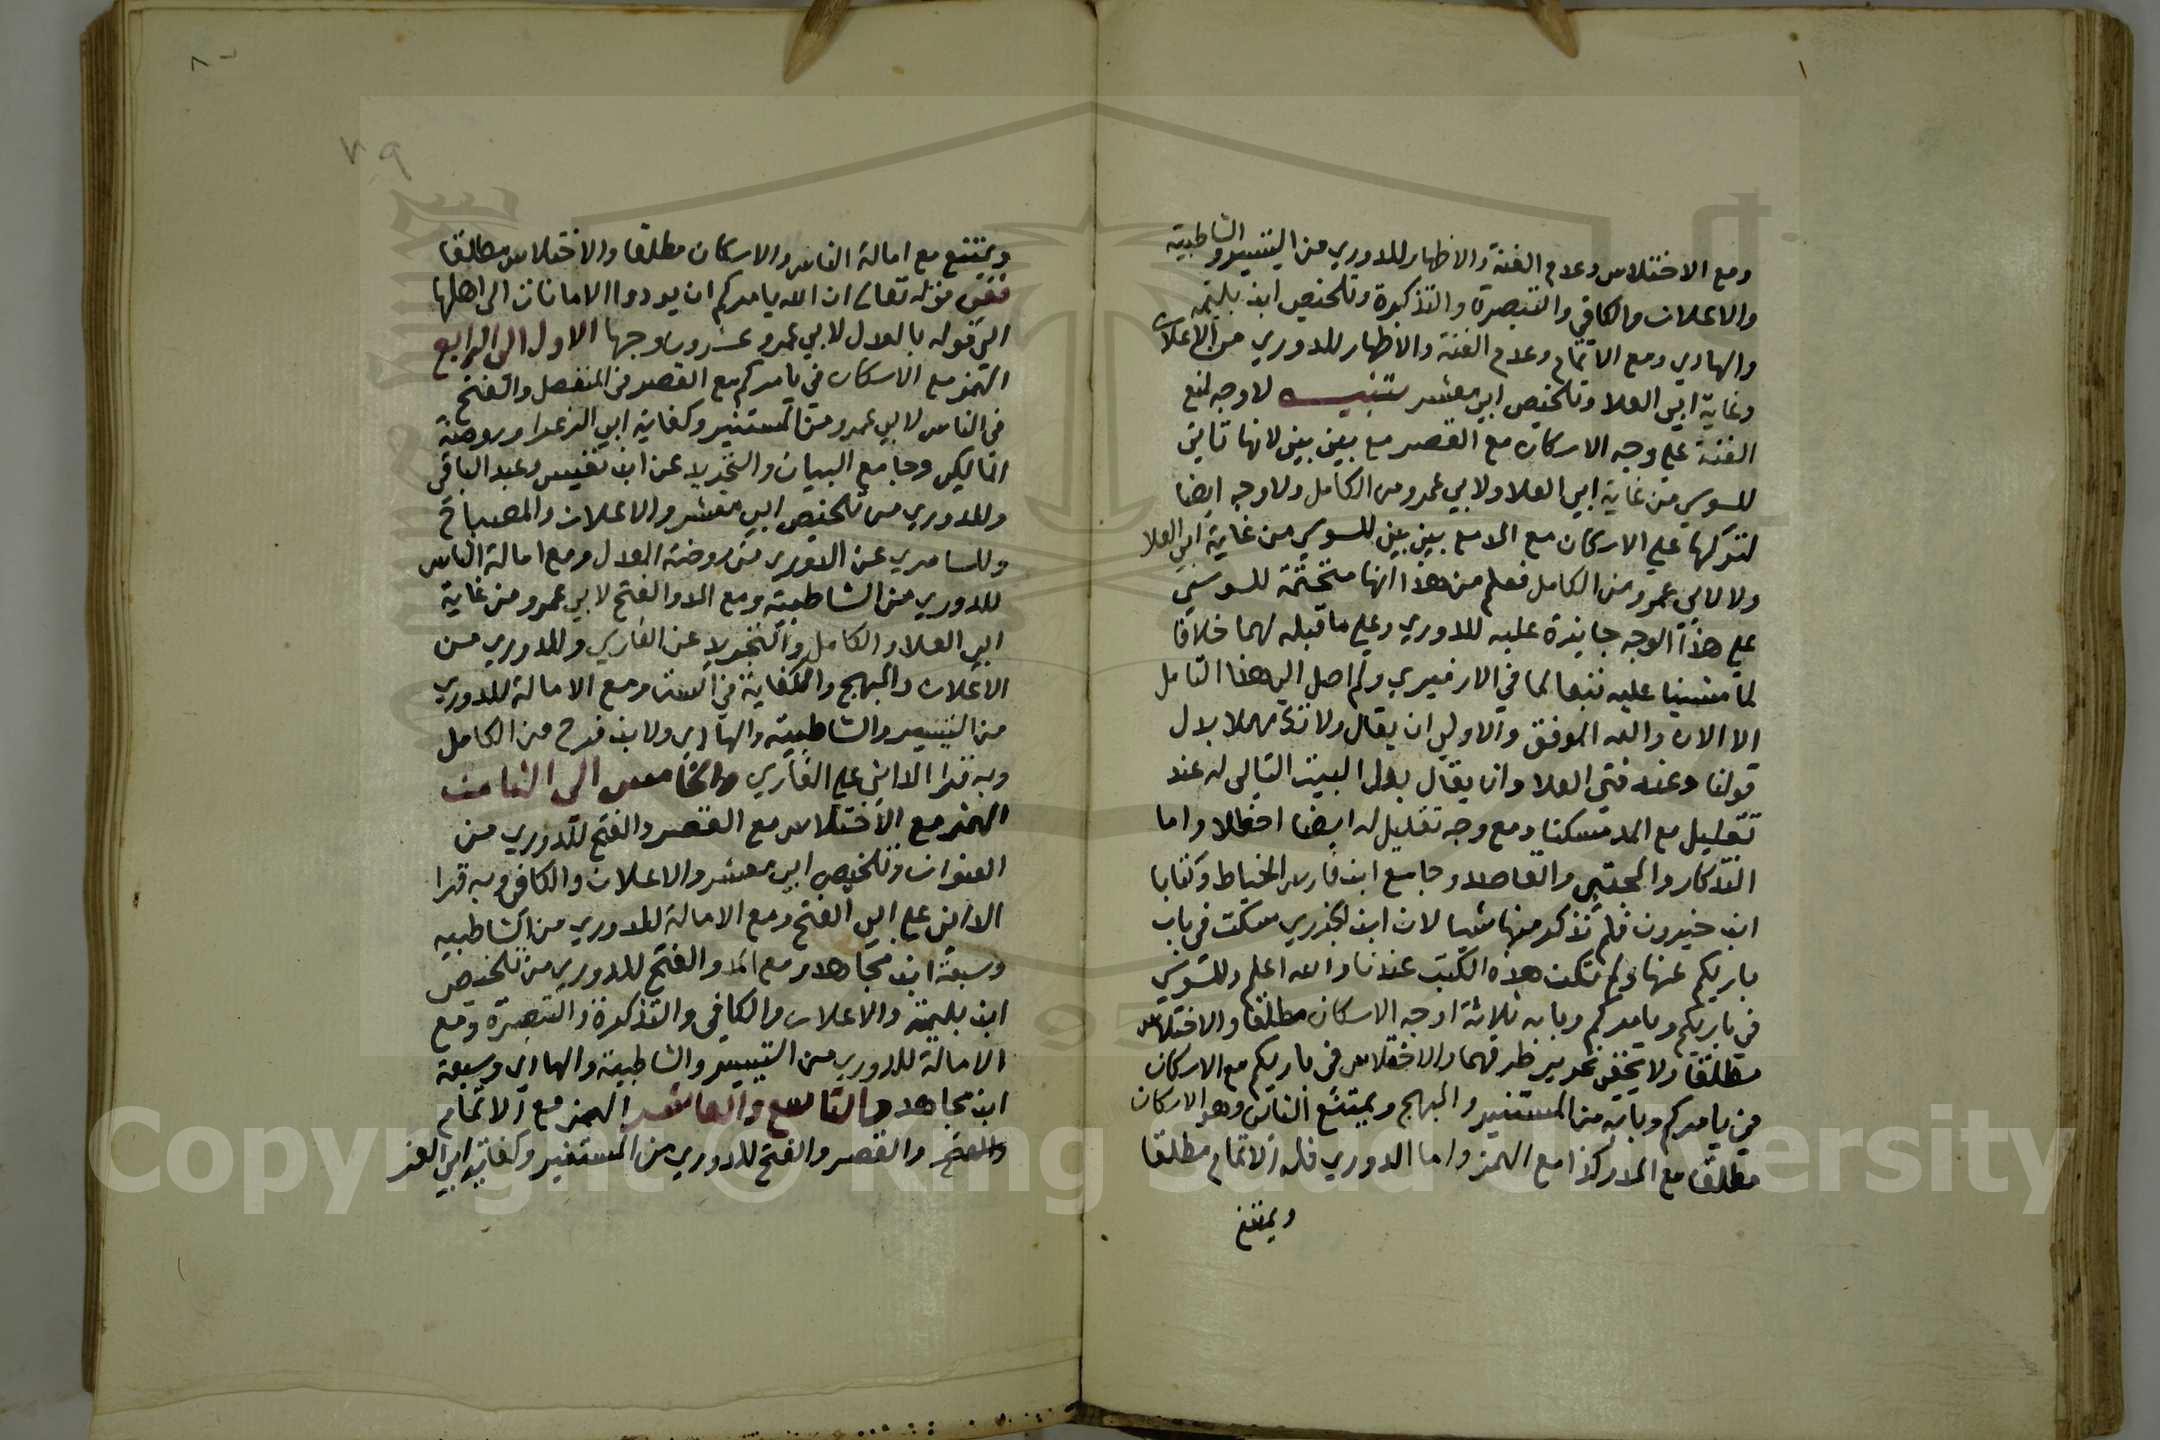 ومع الاختلاس وعدم الغنة والاظهار للدوري من التيسير والشاطبية
والاعلان والكافي والتبصرة والتذكرة وتلخيص ابن بليمة
والهادي ومع الاتمام وعدم الغنة والاظهار للدوري من الاعلان
وغاية ابي العلا وتلخيص ابي معشر تنبيه لا وجه لمنع
الغنة على وجه الاسكان مع القصر مع بين بين لانها تاتي
للسوسي من غاية ابي العلا ولابي عمرو من الكامل ولا وجه ايضا
لتركها على الاسكان مع المد مع بين بين للسوسي من غاية ابي العلا
ولا لابي عمرو من الكامل فعلم من هذا انها متحتمة للسوسي
على هذا الوجه جايزة عليه للدوري وعلى ما قبله لهما خلافا
لما مشينا عليه تبعا لما في الازميري ولم اصل الى هذا التامل
الا الان والله الموفق والاولى ان يقال ولا تك مهملا بدل
قولنا وعنه فتى العلا وان يقال بدل البيت التالي له عند
تقليل مع المد مسكنا ومع وجه تقليل له ايضا احظلا واما
التذكار والمجتبى والقاصد وجامع ابن فارس الخياط وكتابا
ابن خيرون فلم نذكر منها شيا لان ابن الجزري سكت في باب
باريكم عنها ولم تكن هذه الكتب عندنا والله اعلم وللسوسي
في باريكم ويامركم وبابه ثلاثة اوجه الاسكان مطلقا والاختلاس
مطلقا ولا يخفى تحرير طرقهما والاختلاس في باريكم مع الاسكان
في يامركم وبابه من المستنير والمبهج ويمتنع الناس وهو الاسكان
مطلقا مع المد وكذا مع الهمز واما الدوري فله الاتمام مطلقا
ويمتنع
٨٠
٧٩
ويمتنع مع امالة الناس والاسكان مطلقا والاختلاس مطلقا
ففي قوله تعالى ان الله يامركم ان يودوا الامانات الى اهلها
الى قوله بالعدل لابي عمرو عشرون وجها الاول الى الرابع
الهمز مع الاسكان في يامركم مع القصر في المنفصل والفتح
في الناس لابي عمرو من المستنير وكفاية ابي العز وروضة
المالكي وجامع البيان والتجريد عن ابن نفيس وعبد الباقي
وللدوري من تلخيص ابي معشر والاعلان والمصباح
وللسامري عن الدوري من روضة المعدل ومع امالة الناس
للدوري من الشاطبية ومع المد والفتح لابي عمرو من غاية
ابي العلا والكامل والتجريد عن الفارسي وللدوري من
الاعلان والمبهج والكفاية في الست ومع الامالة للدوري
من التيسير والشاطبية والهادي ولابن فرح من الكامل
وبه قرا الداني على الفارسي والخامس الى الثامن
الهمز مع الاختلاس مع القصر والفتح للدوري من
العنوان وتلخيص ابي معشر والاعلان والكافي وبه قرا
الداني على ابي الفتح ومع الامالة للدوري من الشاطبية
وسبعة ابن مجاهد ومع المد والفتح للدوري من تلخيص
ابن بليمة والاعلان والكافي والتذكرة والتبصرة ومع
الامالة للدوري من التيسير والشاطبية والهادي وسبعة
ابن مجاهد والتاسع والعاشر الهمز مع الاتمام
والفتح والقصر والفتح للدوري من المستنير وكفاية ابي العز
Copyright © King Saud University